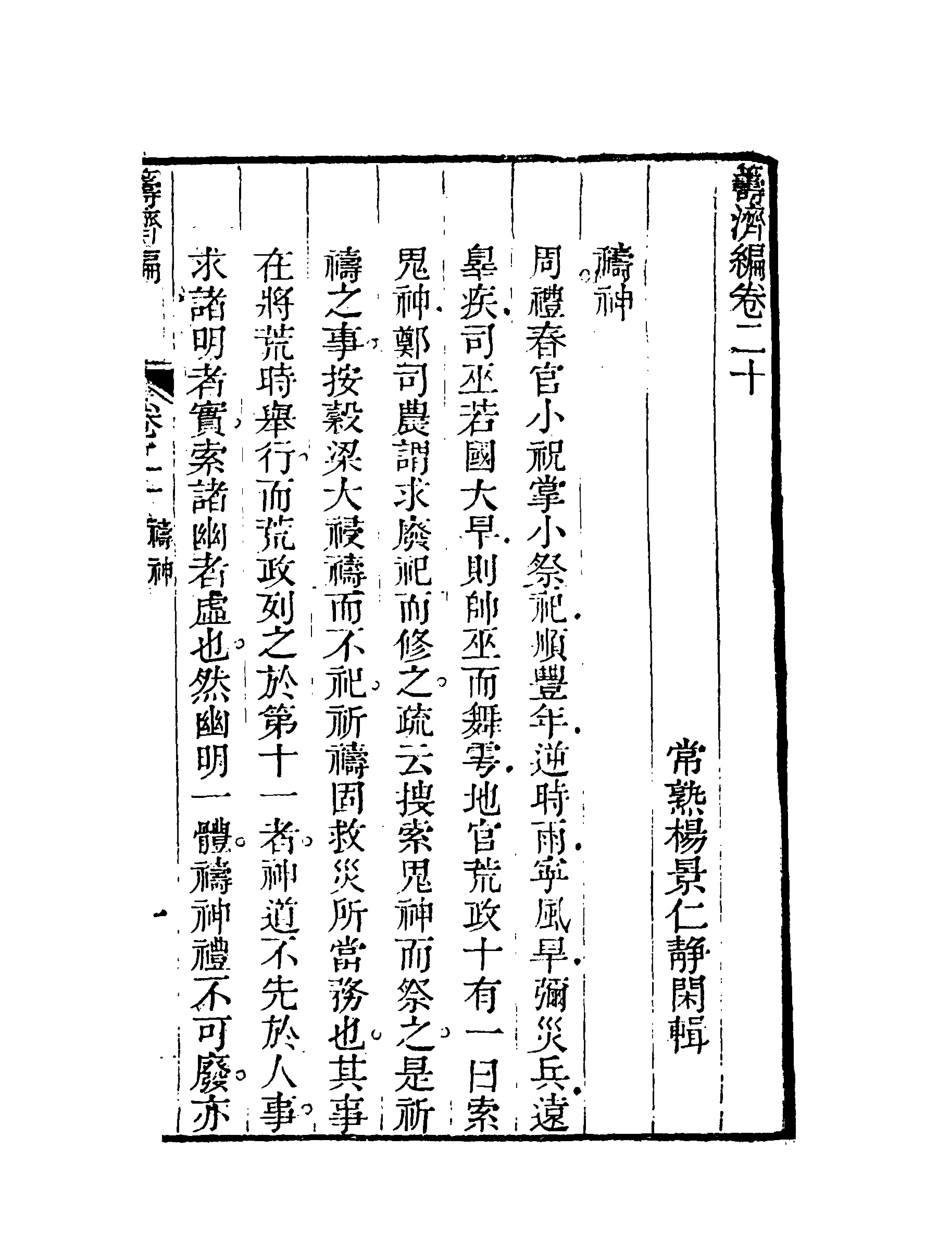 籌濟編卷二十
常熟楊景仁靜閑輯
禱神
周禮春官小祝掌小祭祀順豐年逆時雨寧風旱彌災兵遠
辠疾司巫若國大旱則帥巫而舞雩地官荒政十有一曰索
鬼神鄭司農謂求廢祀而修之疏云搜索鬼神而祭之是祈
禱之事按穀梁大祲禱而不祀祈禱固救災所當務也其事
在將荒時舉行而荒政列之於第十一者神道不先於人事
求諸明者實索諸幽者虛也然幽明一體禱神禮不可廢亦
籌濟編 卷二十 禱神 一